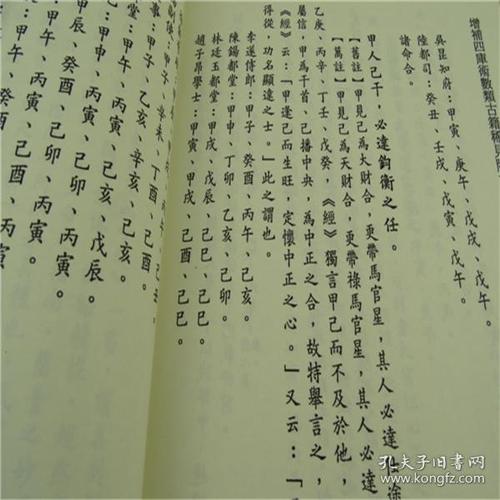 增補四庫術數類古籍
吳昆知府：甲寅、庚午、戊戌、戊午。
陸都司：癸丑、壬戌、戊寅、戊午。
諸命合。
甲人己干，必達鈞衡之任。
【舊註】甲見己為天財合，更帶馬官星，其人必達仕途
【萬註】甲見己為大財合，更帶祿馬官星，其人必達
乙庚、丙辛、丁壬、戊癸，《經》獨言甲己而不及於他，
屬信，甲為干首，己播中央，為中正之合，故特舉言之，
《經》云：「甲逢己而生旺，定懷中正之心。」又云：「
得從，功名顯達之士。」此之謂也。
李遂侍郎：甲子、丙午、己亥。
陳錫都堂：甲申、丁卯、乙亥、己卯。
林廷玉都堂：甲戌、戊辰、己巳、己巳。
趙子昂學士：甲寅、甲戌、己酉、己巳。
甲子、辛未、丁酉、己酉。
甲子、乙亥、辛亥、己亥。
甲午、丙寅、己亥、戊辰。
甲辰、癸酉、己卯、丙寅。
甲午、丙寅、己卯、丙寅。
甲午、癸酉、己酉、丙寅
孔夫子旧书网
www.kongfz.com